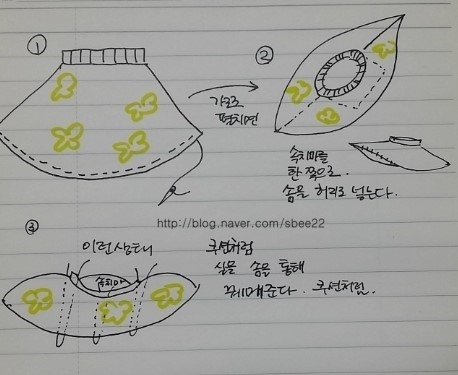 ①
가로로
펼치면
②
속치마를
한 쪽으로.
솜을 허리로 넣는다.
http://blog.naver.com/sbee22
③
이런상태
속치마
쿠션처럼
실을 솜을 통해
꿰매준다. 쿠션처럼.